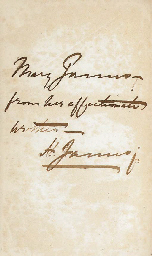 Mary James
from her affectionate
brother
H. James j.